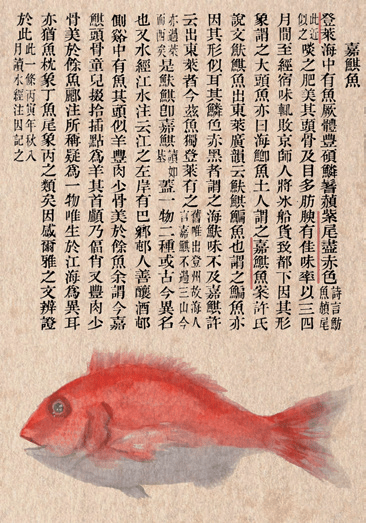 嘉鯕魚
登萊海中有魚厥體豐碩鱗鬐赬紫尾盡赤色詩言魴魚赬尾
此近似之啖之肥美其頭骨及目多肪腴有佳味率以三四
月間至經宿味輒敗京師人將氷船貨致都下因其形
象謂之大頭魚亦曰海鯽魚土人謂之嘉鯕魚案許氏
說文𩵩鯕魚出東萊廣韻云𩵩鯕鯿魚也謂之鯿魚亦
因其形似耳其鱗色赤黑者謂之海𩵩味不及嘉鯕許
云出東萊者今茲魚獨登萊有之舊唯出登州故海人言嘉鯕不過三山今
亦過萊而西矣是𩵩鯕即嘉鯕讀如基蓋一物二種或古今異名
也又水經江水注云江之左岸有巴鄉邨人善釀酒邨
側谿中有魚其頭似羊豐肉少骨美於餘魚余謂今嘉
鯕頭骨童兒掇拾插點為羊其首顱乃偪肖又豐肉少
骨美於餘魚酈注所稱疑為一物唯生於江海為異耳
亦猶魚枕象丁魚尾象丙之類矣因感爾雅之文辨證
於此此一條丙寅年秋八月讀水經注因記之